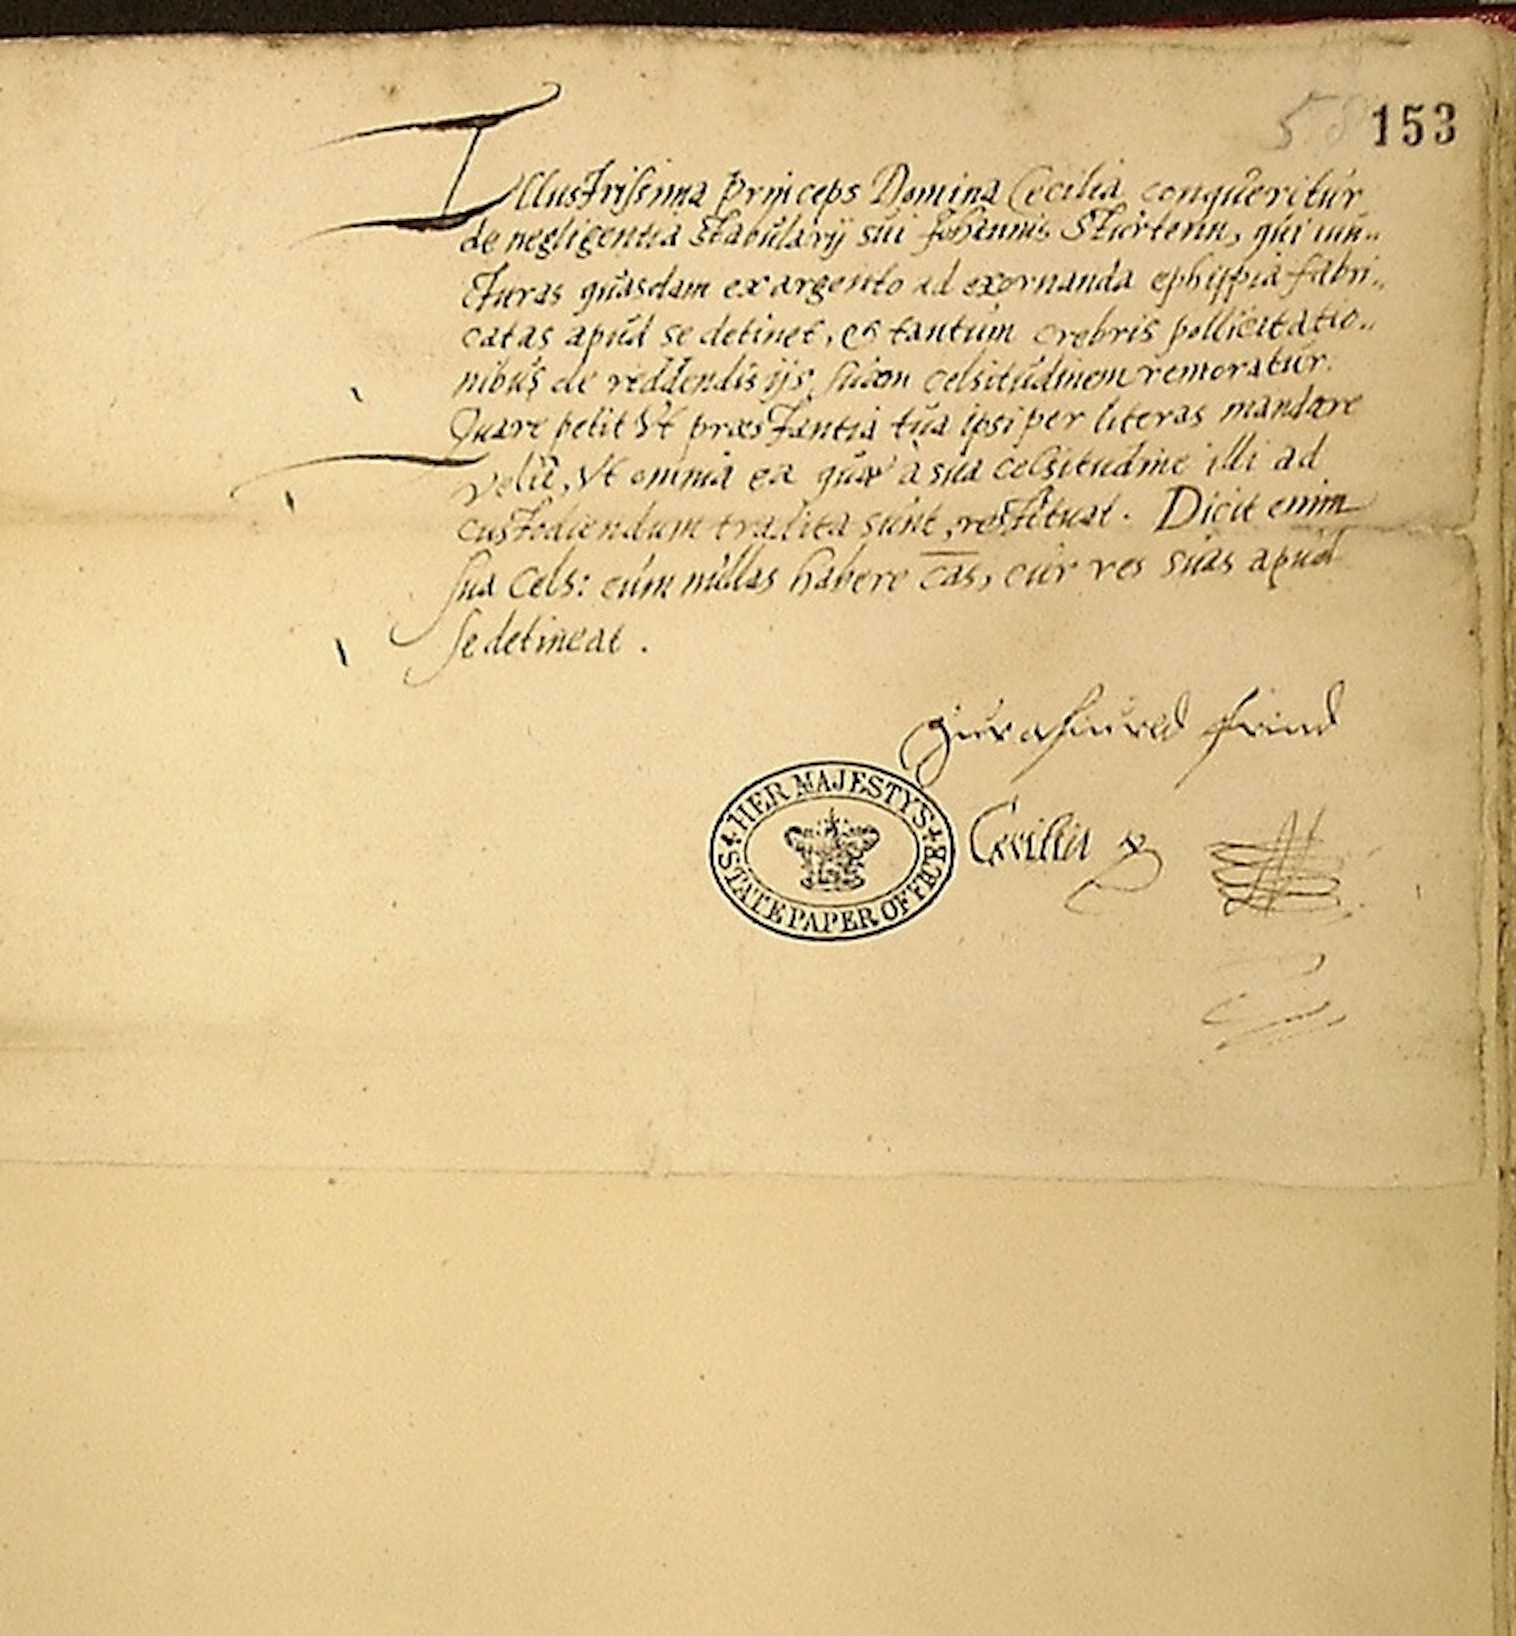 58 153
Illustrissima Princeps Domina Cecilia conqueritur
de negligentia Stabularij sui Johannis Sturtenn, qui iun„
cturas quasdam ex argento ad exornanda ephippia fabri„
catas apud se detinet, et tantum crebris pollicitatio„
nibus de reddendis ijs, suam celsitudinem remoratur.
Quare petit Vt præstantia tua ipsi per literas mandare
velit, Vt omnia ea quæ à sua celsitudine illi ad
custodiendum tradita sunt, restituat. Dicit enim
sua Cels: eum nullas habere cas, cur res suas apud
se detineat.
yur asured frind
HER MAJESTYS
STATE PAPER OFFICE
Cecilia